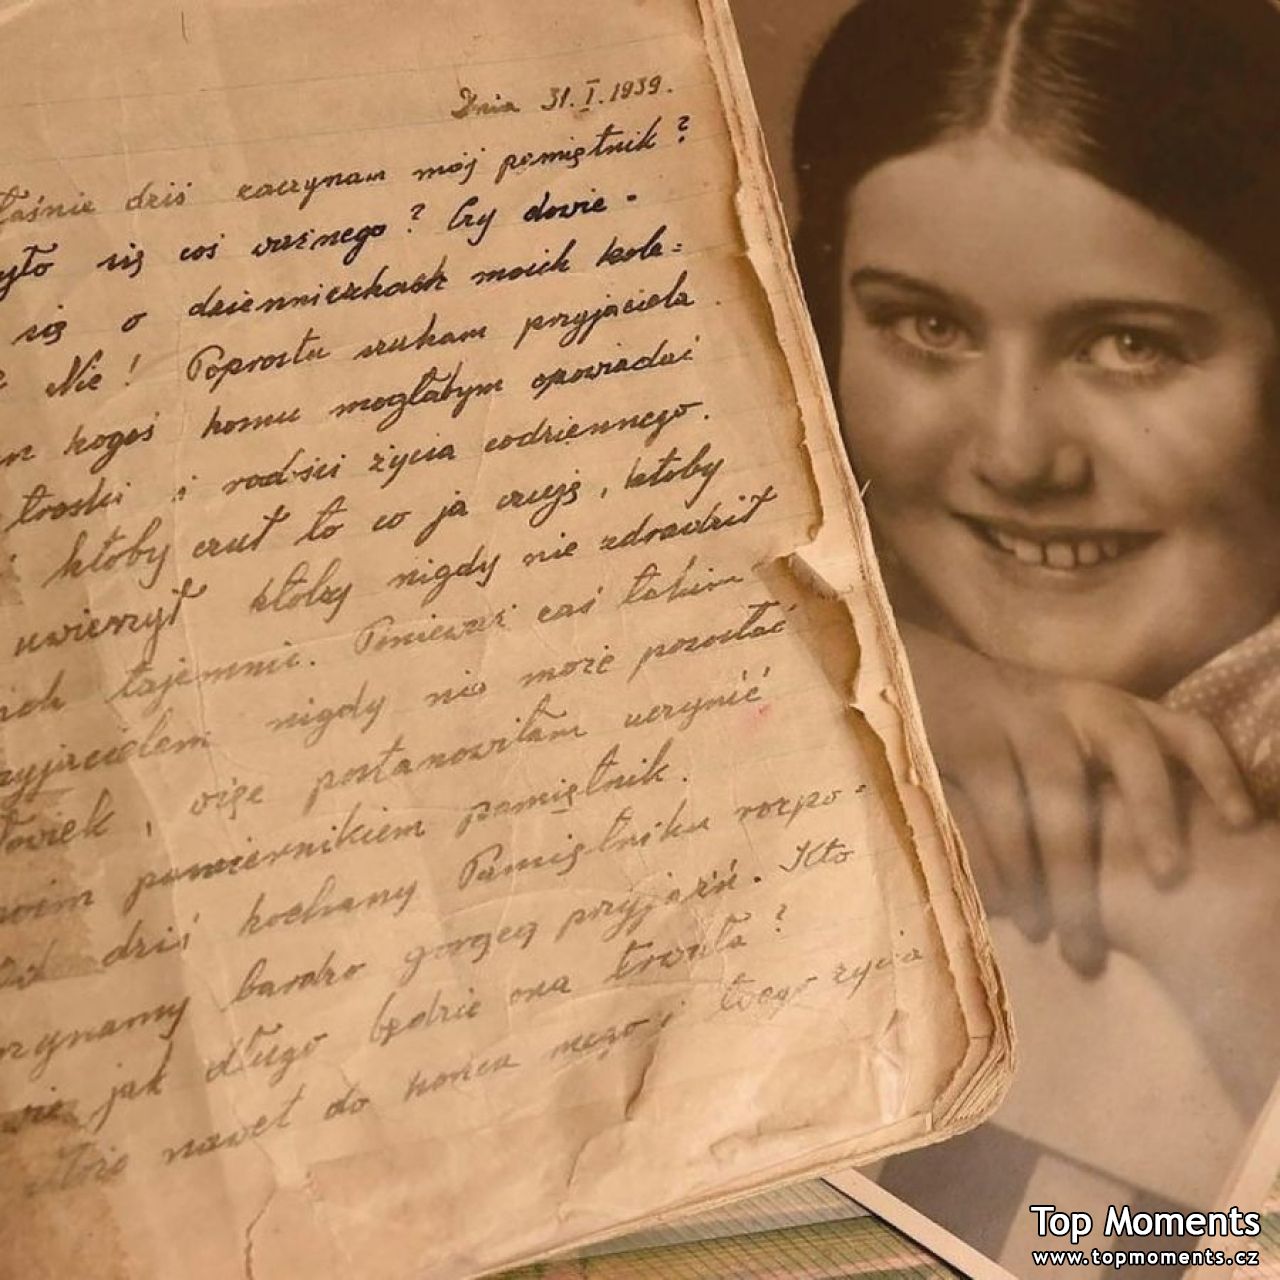 Dnia 31.I.1939.
dziś zaczynam mój pamiętnik?
się coś ważnego? Czy dowie-
się o dzienniczkach moich kole=
Nie! Poprostu szukam przyjaciela.
kogoś komu mogłabym opowiadać
troski i radości życia codziennego.
ktoby czuł to co ja czuję, ktoby
uwierzył ktoby nigdy nie zdradził
tajemnic. Ponieważ coś takim
nigdy nie może pozostać
, więc postanowiłam uczynić
powiernikiem pamiętnik.
dziś kochany Pamiętniku rozpo=
bardzo gorącą przyjaźń. Kto
jak długo będzie ona trwała?
nawet do końca mego i twego życia
Top Moments
www.topmoments.cz